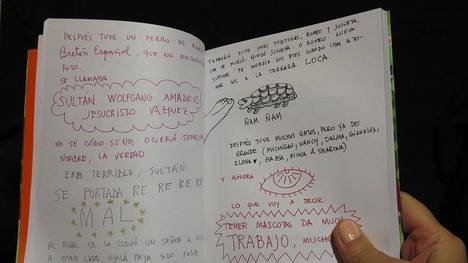 DESPUÉS TUVE UN PERRO DE RAZA
Bretón Español, QUE NO ENCONTRÉ
FOTO.
SE LLAMABA
SULTÁN WOLFGANG AMADEUS
JESUCRISTO VÁZQUEZ
NO SÉ CÓMO SE NOS OCURRIÓ SEMEJANTE
NOMBRE, LA VERDAD
ERA TERRIBLE, SULTÁN
SE PORTABA RE RE RE RE
MAL
AL FINAL SE LO LLEVÓ UN SEÑOR A
A OTRO LADO, OJALÁ HAYA
TAMBIÉN TUVE UNAS TORTUGAS, ROMEO Y JULIETA,
SE MURIÓ. QUEDÓ JULIETA O ROMEO, NUNCA
SUPIMOS. TE MORDÍA LOS PIES CUANDO IBAS A TO-
MAR SOL A LA TERRAZA. LOCA.
ÑAM ÑAM
DESPUÉS TUVE MUCHOS GATOS, PERO YA DE
GRANDE (MICHIGAN, NANCY, DALMA, GIANNINA,
ILONA, BABSA, & SHARONA)
Y AHORA
LO QUE VOY A DECIR
TENER MASCOTAS DA MUCH
TRABAJO, MUCHO